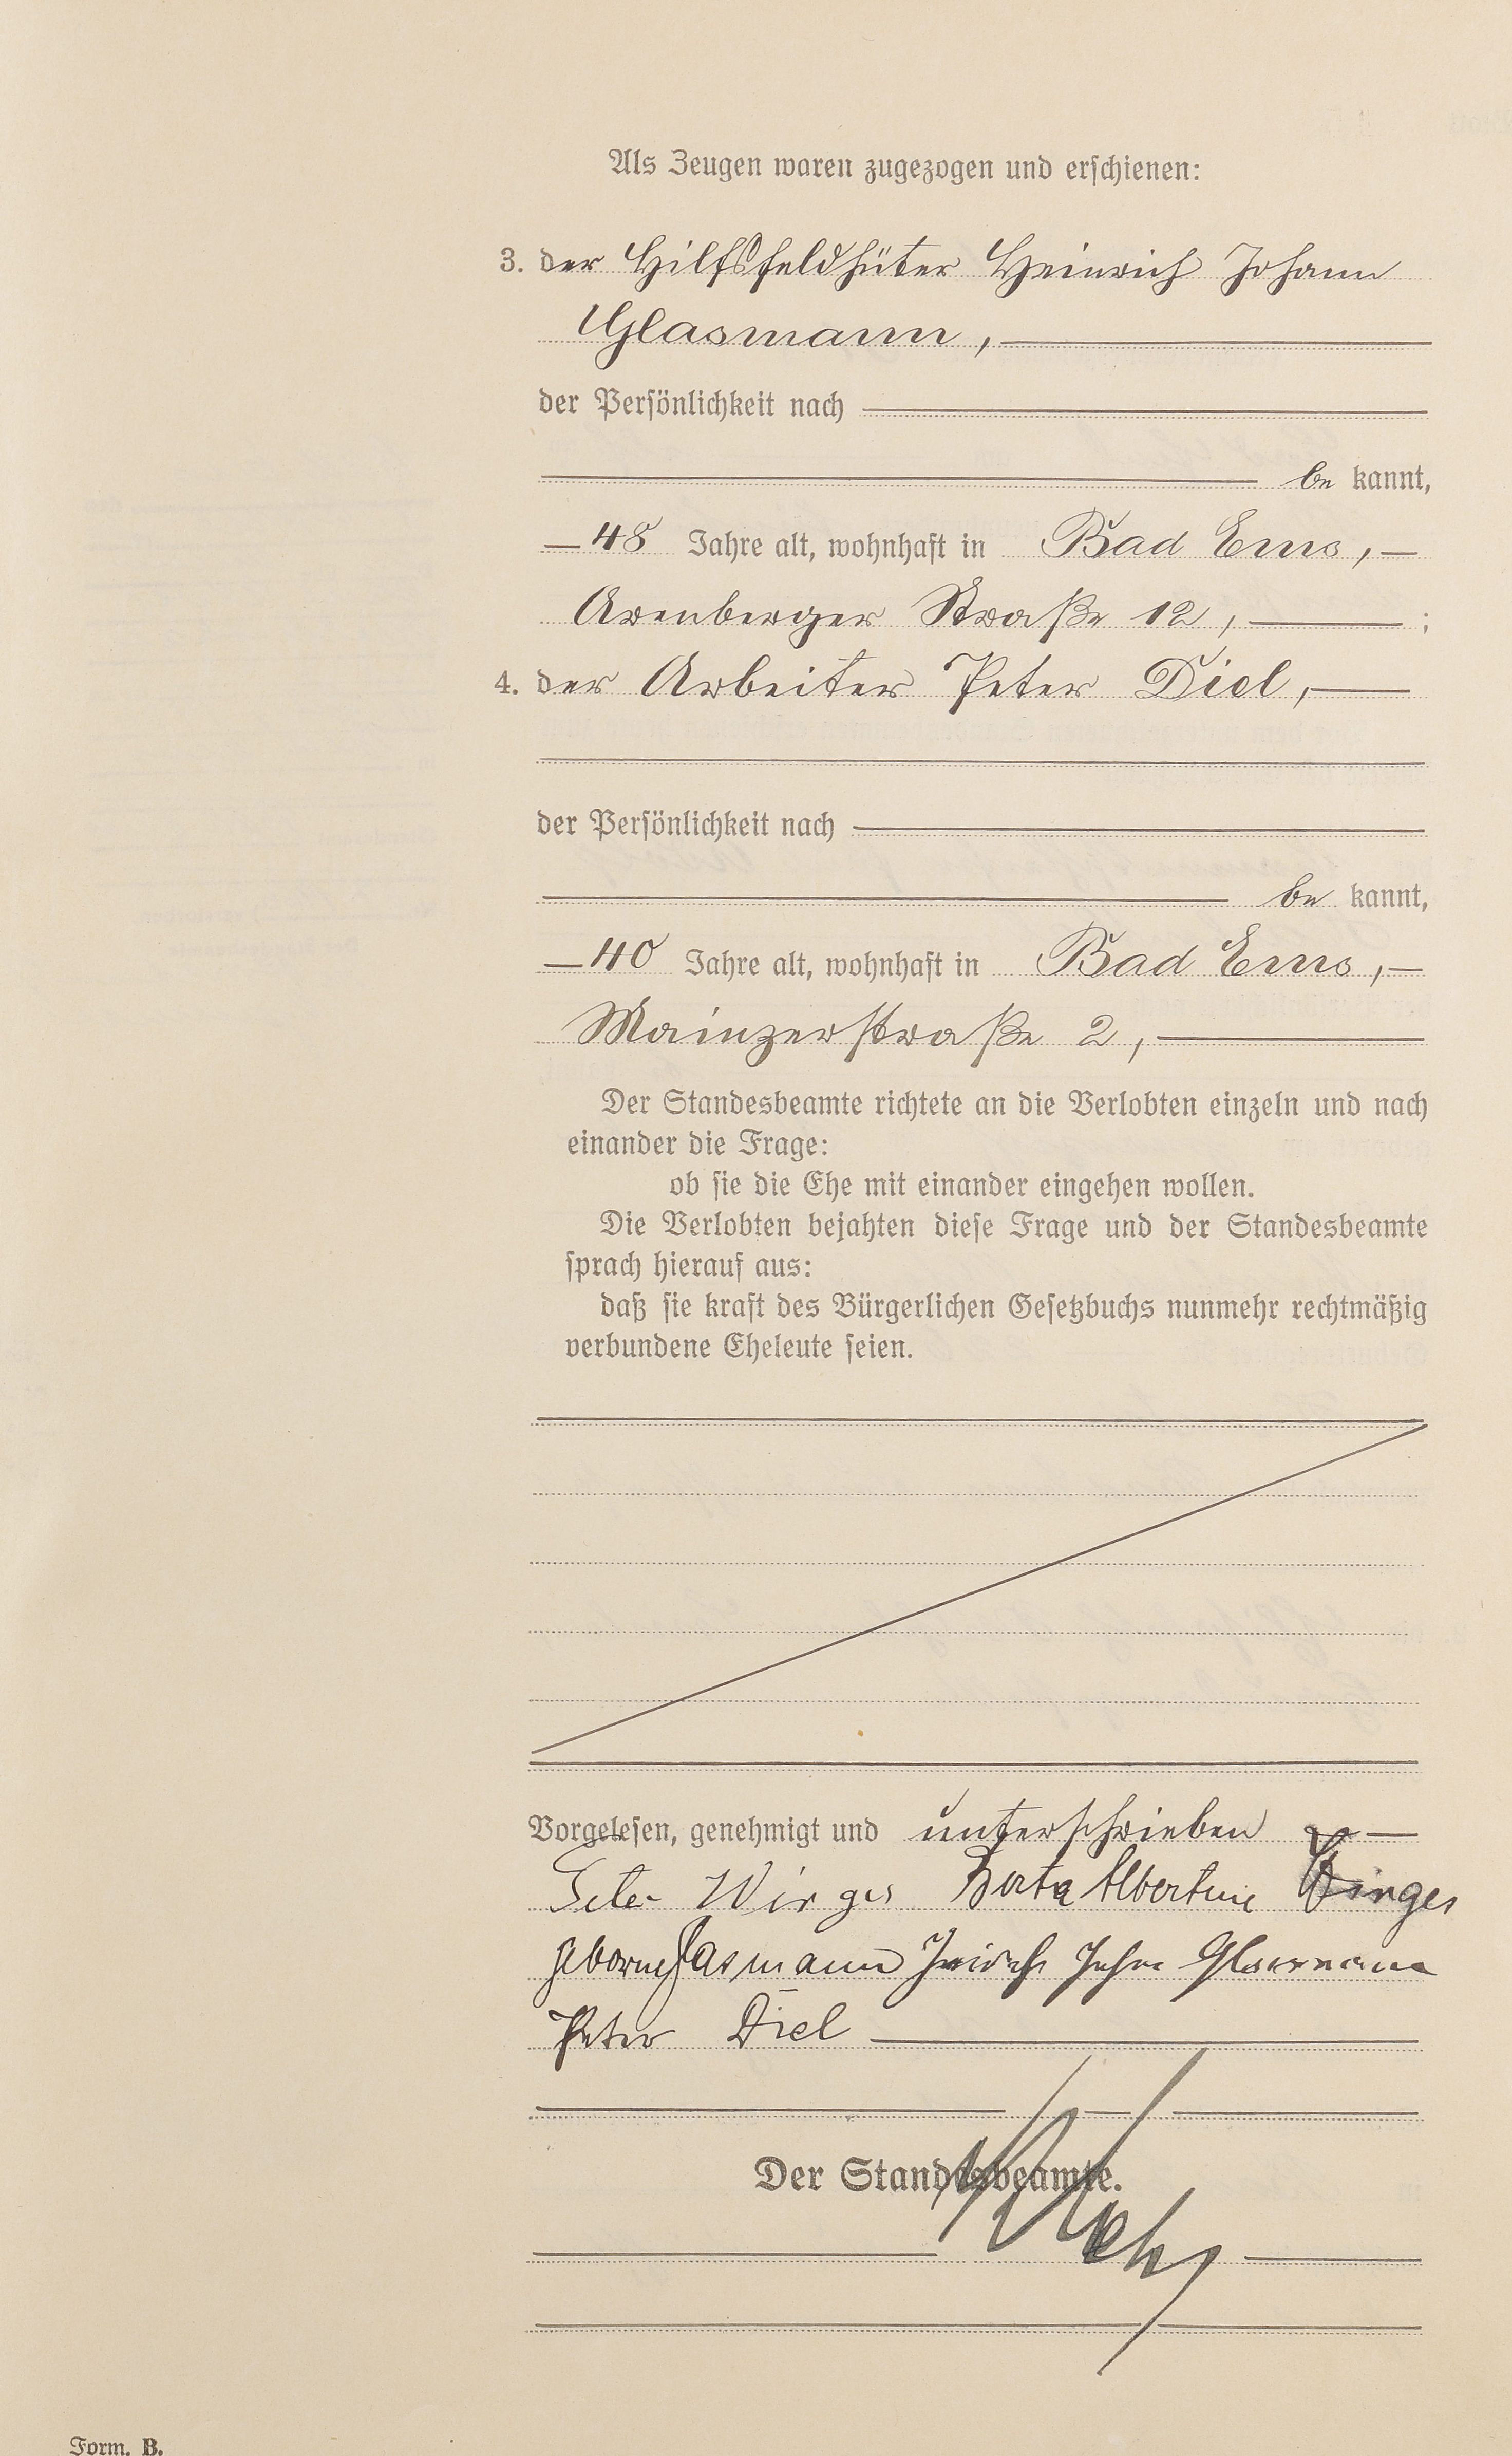 Als Zeugen waren zugezogen und erschienen:
3. der Hilfsfeldhüter Heinrich Johann
Glasmann,
der Persönlichkeit nach
be kannt,
48 Jahre alt, wohnhaft in Bad Ems,
Arenberger Straße 12, ;
4. der Arbeiter Peter Diel,
der Persönlichkeit nach
be kannt,
40 Jahre alt, wohnhaft in Bad Ems,
Mainzerstraße 2,
Der Standesbeamte richtete an die Verlobten einzeln und nach
einander die Frage:
ob sie die Ehe mit einander eingehen wollen.
Die Verlobten bejahten diese Frage und der Standesbeamte
sprach hierauf aus:
daß sie kraft des Bürgerlichen Gesetzbuchs nunmehr rechtmäßig
verbundene Eheleute seien.
Vorgelesen, genehmigt und unterschrieben
Peter Wirges Berta Albertine Wirges
geborne Glasmann Heinrich Johan Glasmann
Peter Diel
Der Standesbeamte.
Form. B.